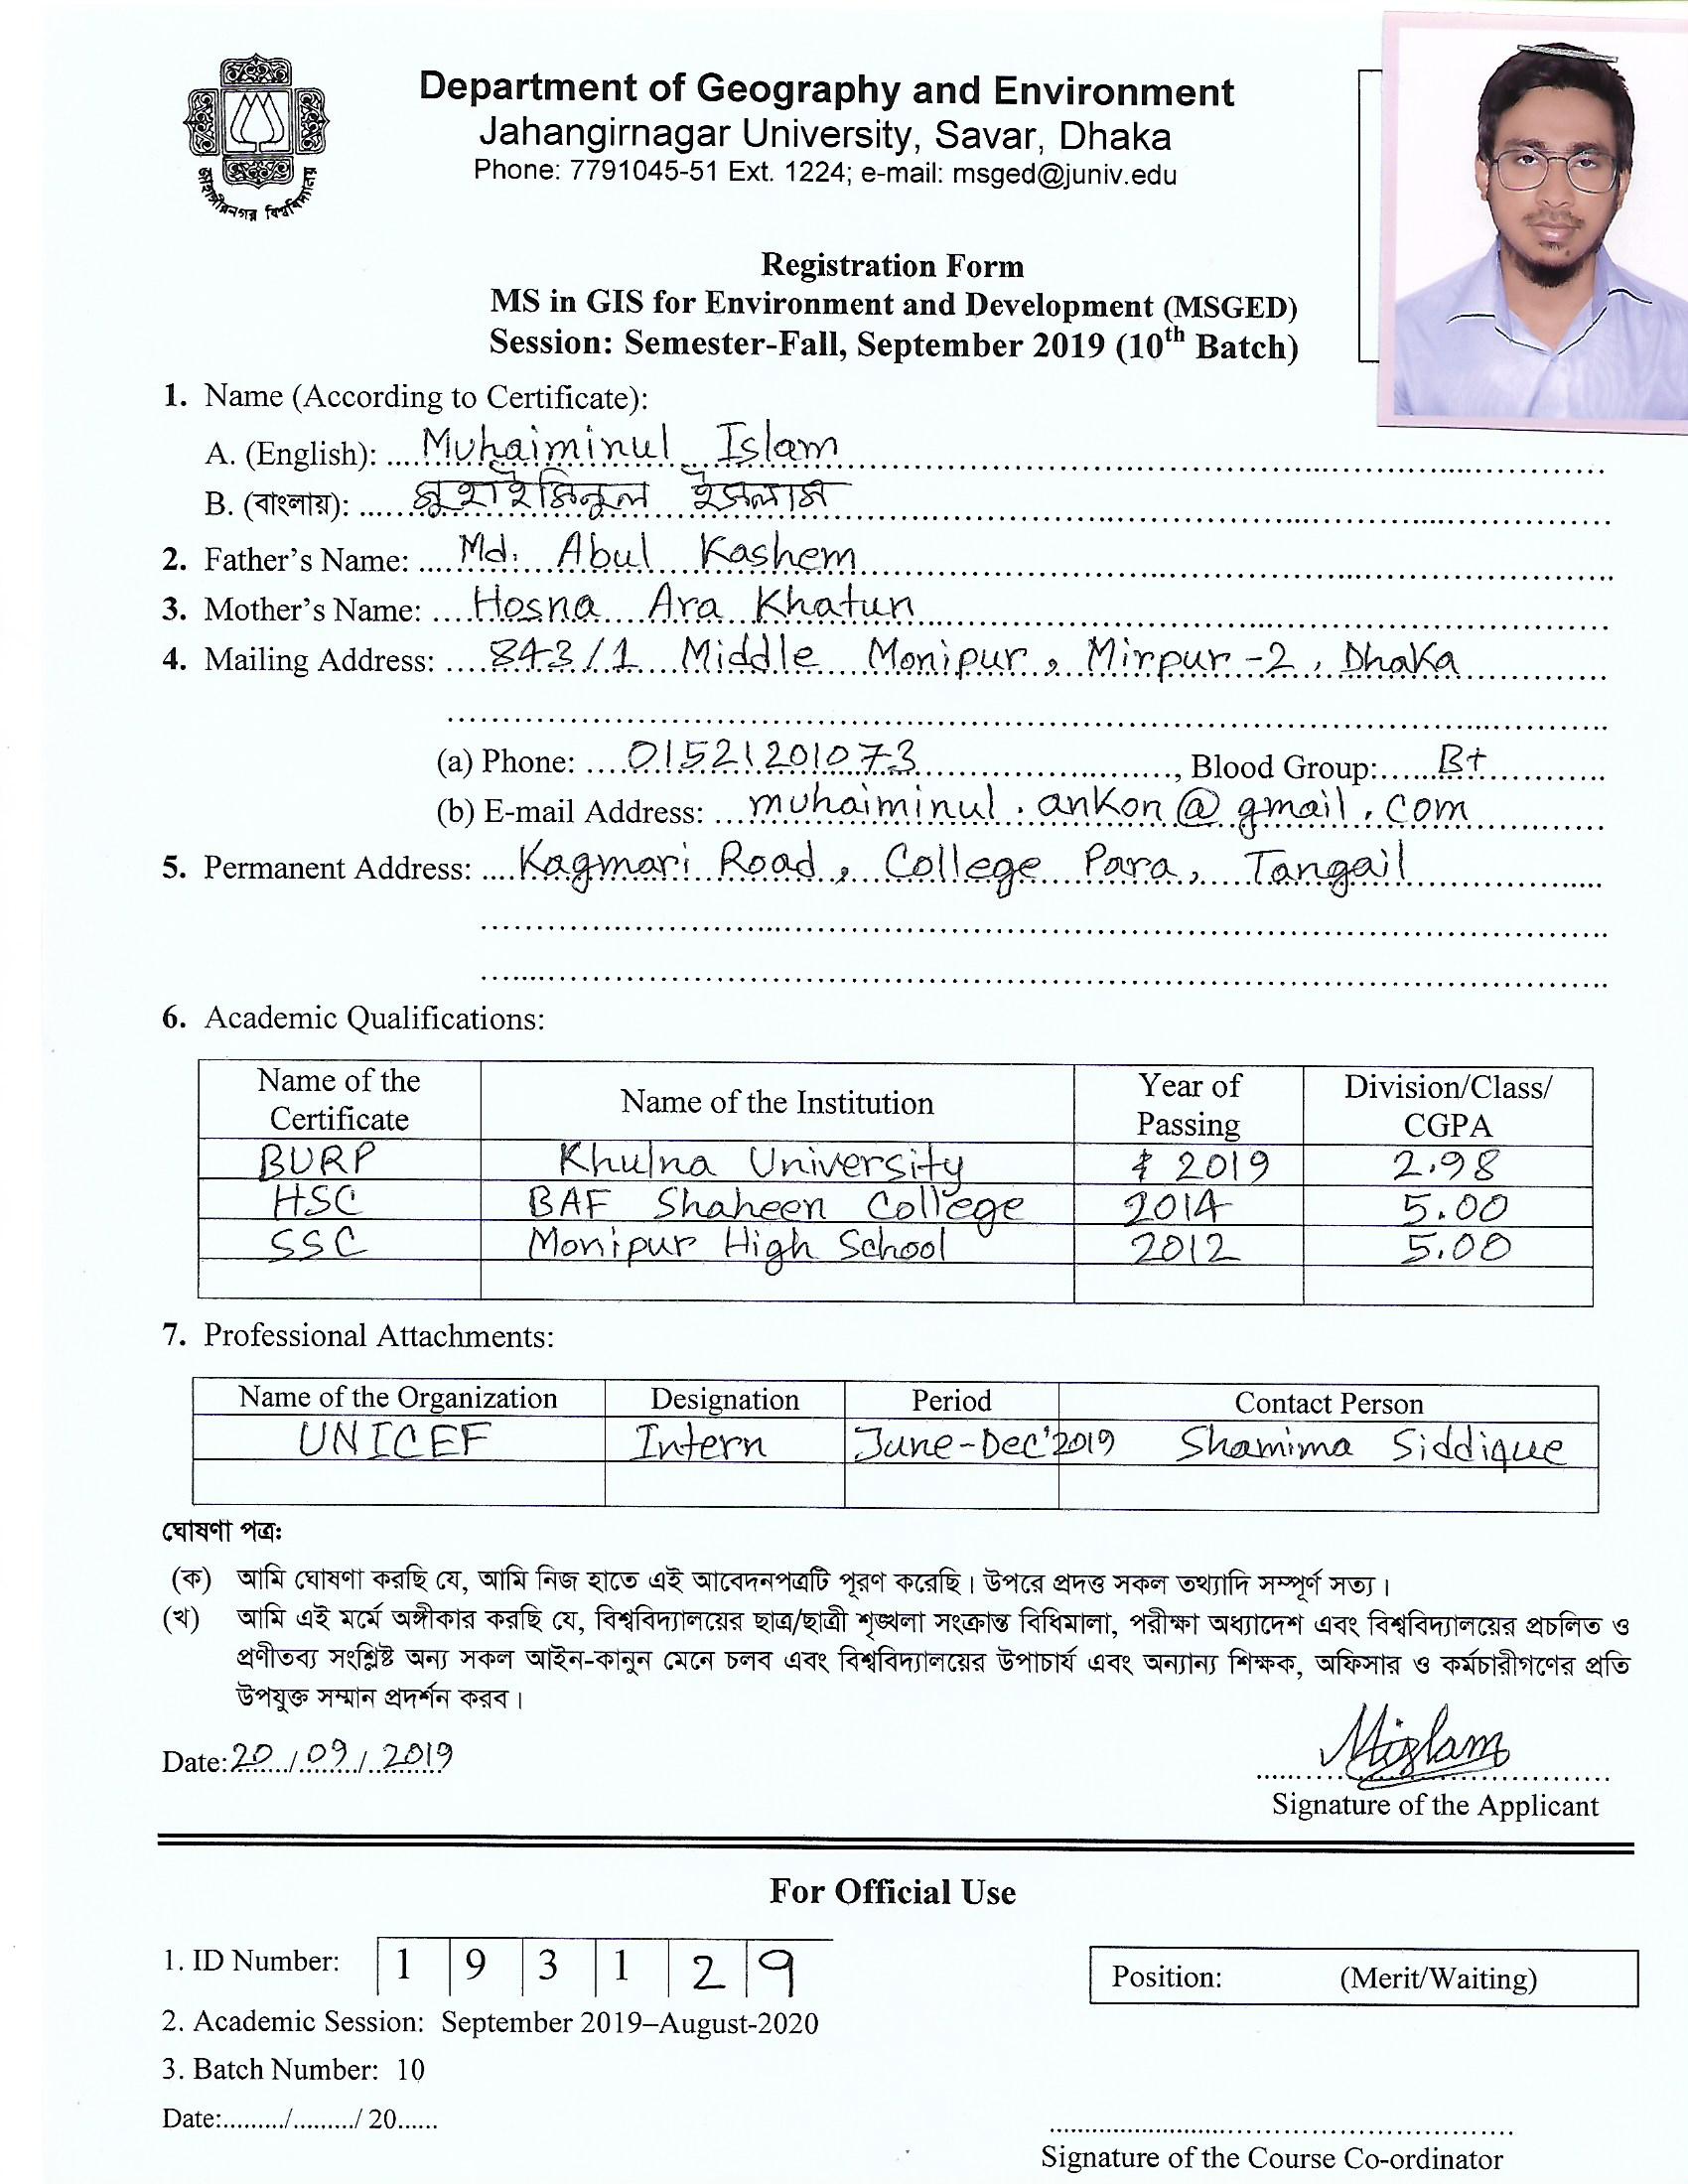 জাহাঙ্গীরনগর বিশ্ববিদ্যালয়
Department of Geography and Environment
Jahangirnagar University, Savar, Dhaka
Phone: 7791045-51 Ext. 1224; e-mail: msged@juniv.edu
Registration Form
MS in GIS for Environment and Development (MSGED)
Session: Semester-Fall, September 2019 (10th Batch)
1. Name (According to Certificate):
A. (English): Muhaiminul Islam
B. (বাংলায়): মুহাইমিনুল ইসলাম
2. Father's Name: Md. Abul Kashem
3. Mother's Name: Hosna Ara Khatun
4. Mailing Address: 843/1 Middle Monipur, Mirpur-2, Dhaka
(a) Phone: 01521201073, Blood Group: B+
(b) E-mail Address: muhaiminul.ankon@gmail.com
5. Permanent Address: Kagmari Road, College Para, Tangail
6. Academic Qualifications:
Name of the Certificate Name of the Institution Year of Passing Division/Class/CGPA
BURP Khulna University 2019 2.98
HSC BAF Shaheen College 2014 5.00
SSC Monipur High School 2012 5.00
7. Professional Attachments:
Name of the Organization Designation Period Contact Person
UNICEF Intern June-Dec'2019 Shamima Siddique
ঘোষণা পত্র:
(ক) আমি ঘোষণা করছি যে, আমি নিজ হাতে এই আবেদনপত্রটি পূরণ করেছি। উপরে প্রদত্ত সকল তথ্যাদি সম্পূর্ণ সত্য।
(খ) আমি এই মর্মে অঙ্গীকার করছি যে, বিশ্ববিদ্যালয়ের ছাত্র/ছাত্রী শৃঙ্খলা সংক্রান্ত বিধিমালা, পরীক্ষা অধ্যাদেশ এবং বিশ্ববিদ্যালয়ের প্রচলিত ও
প্রণীতব্য সংশ্লিষ্ট অন্য সকল আইন-কানুন মেনে চলব এবং বিশ্ববিদ্যালয়ের উপাচার্য এবং অন্যান্য শিক্ষক, অফিসার ও কর্মচারীগণের প্রতি
উপযুক্ত সম্মান প্রদর্শন করব।
Date: 20/09/2019
MIslam
Signature of the Applicant
For Official Use
1. ID Number: 1 9 3 1 2 9
Position: (Merit/Waiting)
2. Academic Session: September 2019–August-2020
3. Batch Number: 10
Date:........./........./ 20......
Signature of the Course Co-ordinator